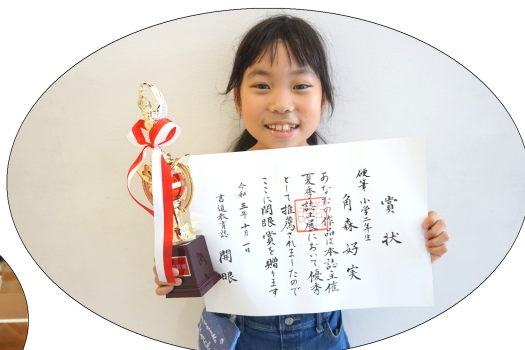 賞状
硬筆 小学二年生
角森好実
あなたの作品は本誌主催
夏季誌上展において優秀
として推薦されましたので
ここに開眼賞を贈ります
令和三年十月一日
書道教育誌 開眼